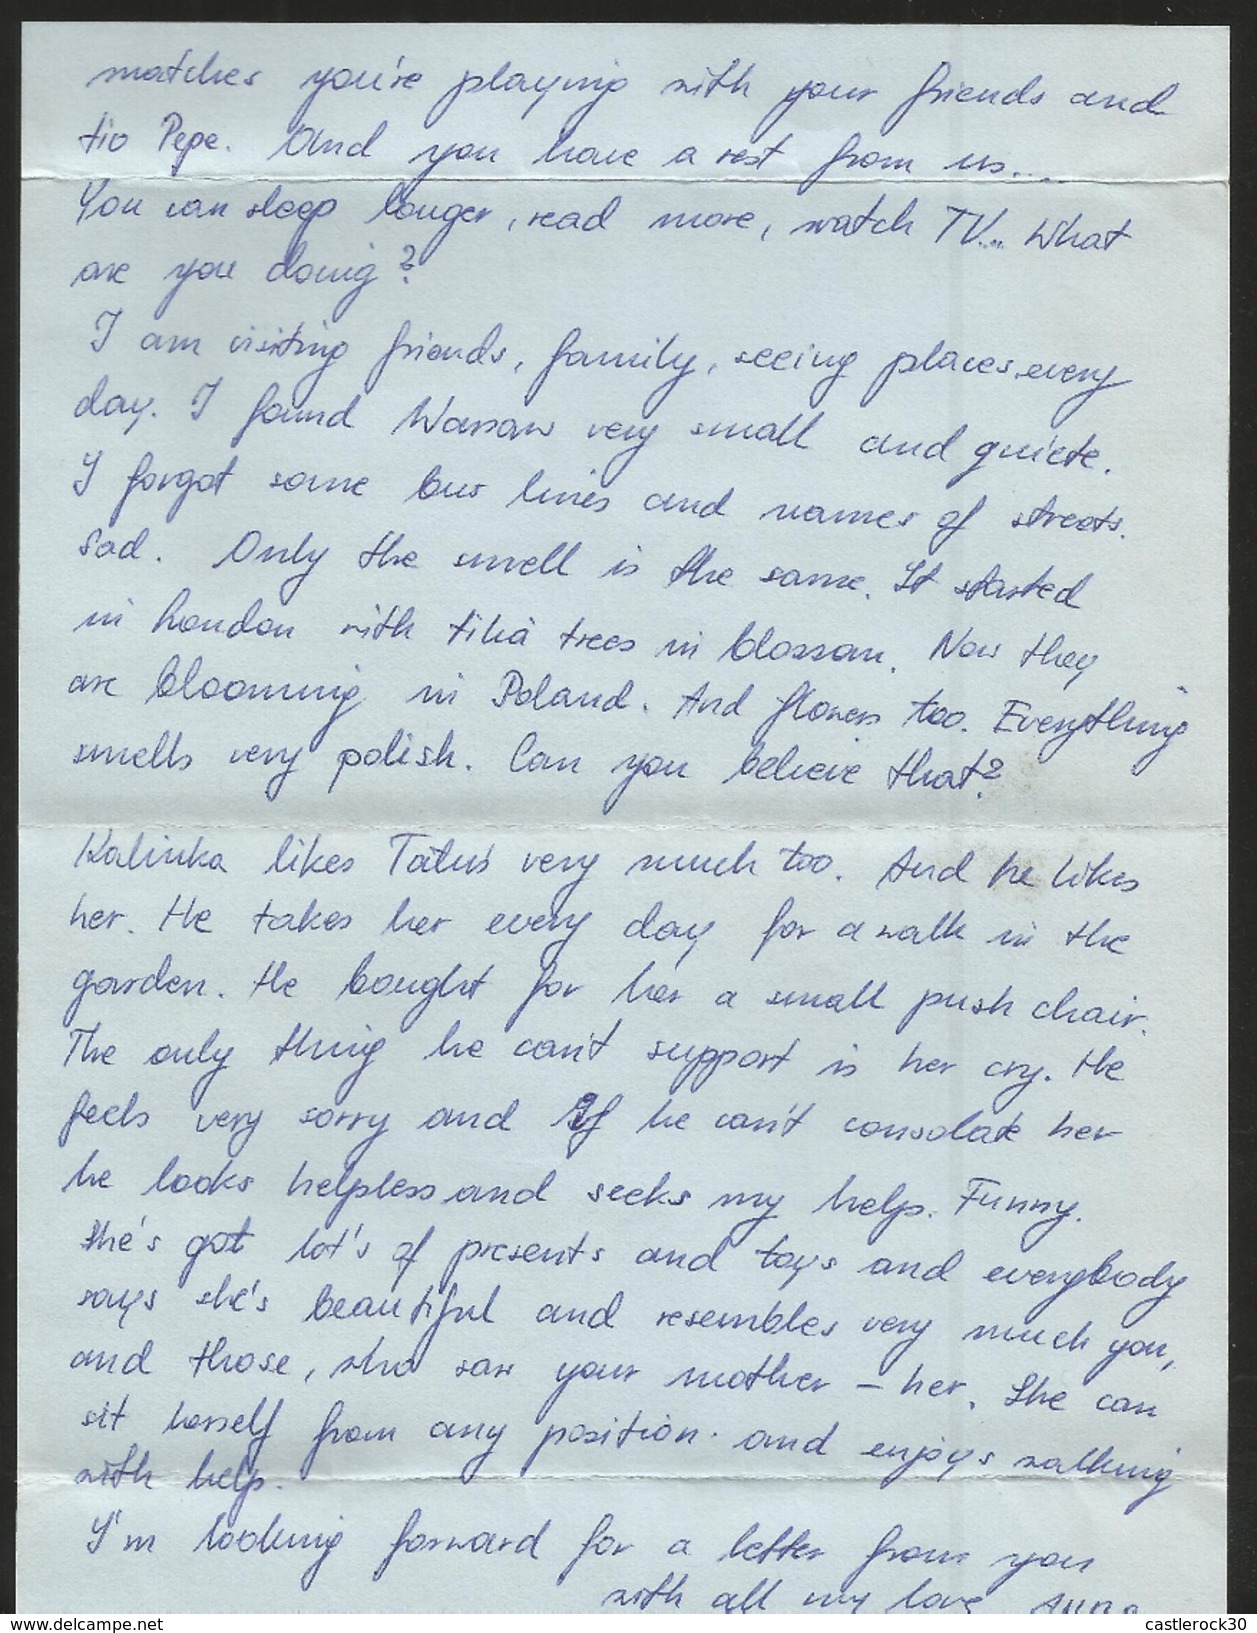 matches you're playing with your friends and
tio Pepe. And you have a rest from us....
You can sleep longer, read more, watch TV... What
are you doing?
I am visiting friends, family, seeing places every
day. I found Warsaw very small and quiete.
I forgot some bus lines and names of streets.
Sad. Only the smell is the same. It started
in London with tilia trees in blossom. Now they
are blooming in Poland. And flowers too. Everything
smells very polish. Can you believe that?
Kalinka likes Tatuś very much too. And he likes
her. He takes her every day for a walk in the
garden. He bought for her a small push chair.
The only thing he can't support is her cry. He
feels very sorry and if he can't consolate her
he looks helpless and seeks my help. Funny.
She's got lot's of presents and toys and everybody
says she's beautiful and resembles very much you,
and those, who saw your mother - her. She can
sit herself from any position and enjoys walking
with help.
I'm looking forward for a letter from you
with all my love Anna
castlerock30
www.delcampe.net